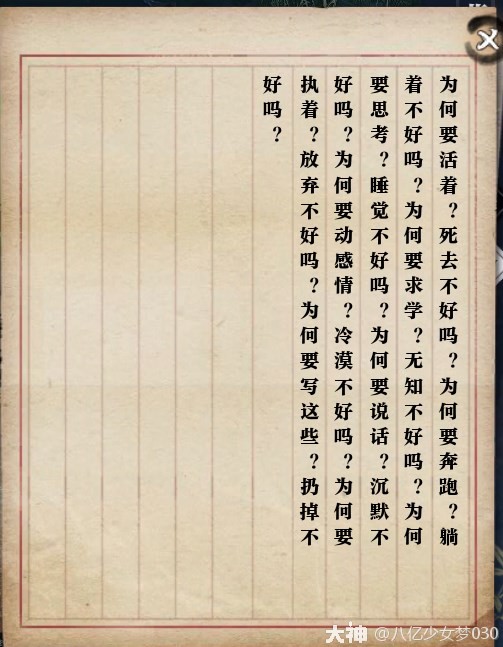 为何要活着？死去不好吗？为何要奔跑？躺
着不好吗？为何要求学？无知不好吗？为何
要思考？睡觉不好吗？为何要说话？沉默不
好吗？为何要动感情？冷漠不好吗？为何要
执着？放弃不好吗？为何要写这些？扔掉不
好吗？
大神 @八亿少女梦030